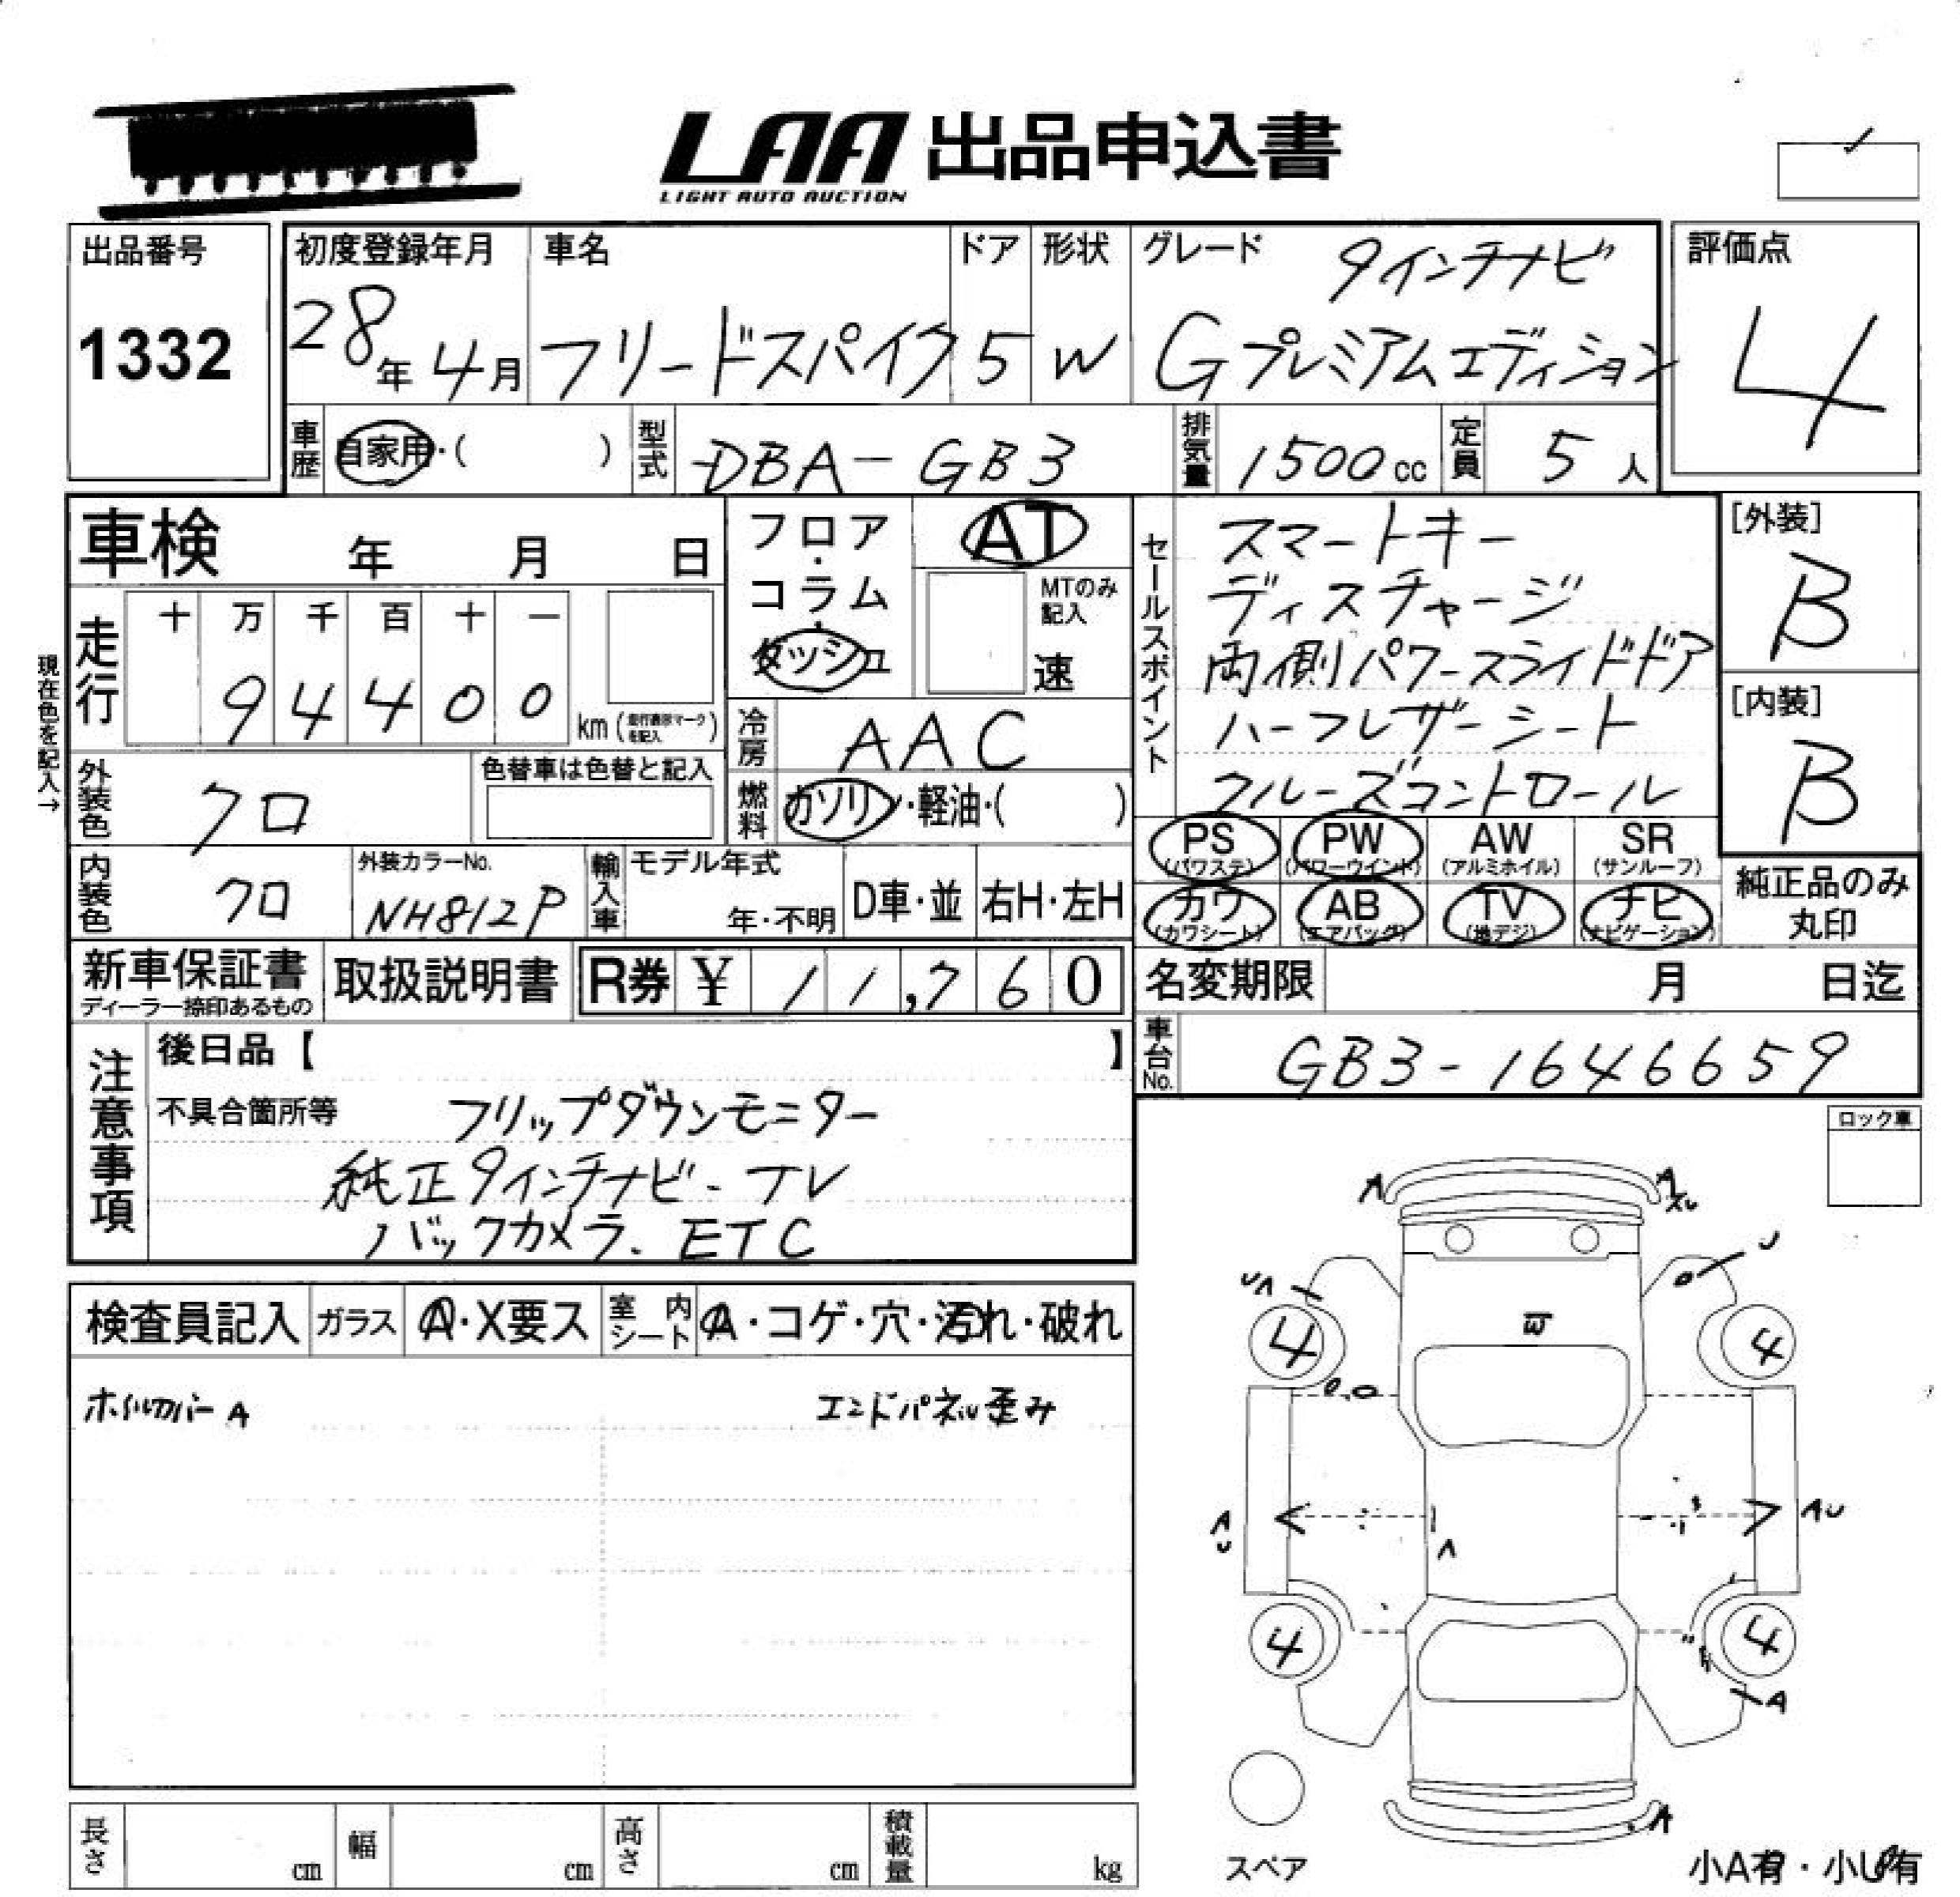 LAA 出品申込書
LIGHT AUTO AUCTION
出品番号
1332
初度登録年月
28年 4月
車名
フリードスパイク
ドア
5
形状
W
グレード
9インチナビ
Gプレミアムエディション
評価点
4
車歴 自家用・( )
型式 DBA-GB3
排気量 1500cc
定員 5人
車検 年 月 日
現在色を記入→
走行 十 万 千 百 十 一
94400 km (走行表示マークを記入)
外装色 クロ
色替車は色替と記入
内装色 クロ
外装カラーNo.
NH812P
フロア・コラム・ダッシュ
AT
MTのみ記入
速
冷房 AAC
燃料 ガソリン・軽油・( )
輸入車 モデル年式
年・不明
D車・並 右H・左H
セールスポイント
スマートキー
ディスチャージ
両側パワースライドドア
ハーフレザーシート
クルーズコントロール
[外装]
B
[内装]
B
PS (パワステ) PW (パワーウインド) AW (アルミホイル) SR (サンルーフ)
カワ (カワシート) AB (エアバッグ) TV (地デジ) ナビ (ナビゲーション)
純正品のみ丸印
新車保証書
ディーラー捺印あるもの
取扱説明書
R券 ¥ 11,760
名変期限 月 日迄
車台No. GB3-1646659
注意事項
後日品【 】
不具合箇所等
フリップダウンモニター
純正9インチナビ・TV
バックカメラ、ETC
ロック車
検査員記入 ガラス A・X要ス 室内シート A・コゲ・穴・汚れ・破れ
ホイルカバーA
エンドパネル歪み
A A
U
UA
W
4 4
AU AU
A
4 4
A
A
スペア
小A有・小U有
長さ cm 幅 cm 高さ cm 積載量 kg